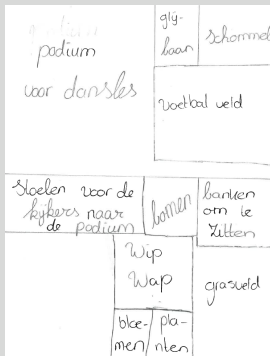 podium
voor dansles
glij-
baan
schommel
voetbal veld
stoelen voor de
kijkers naar
de podium
bomen
banken
om te
zitten
Wip
Wap
grasveld
bloe-
men
pla-
nten